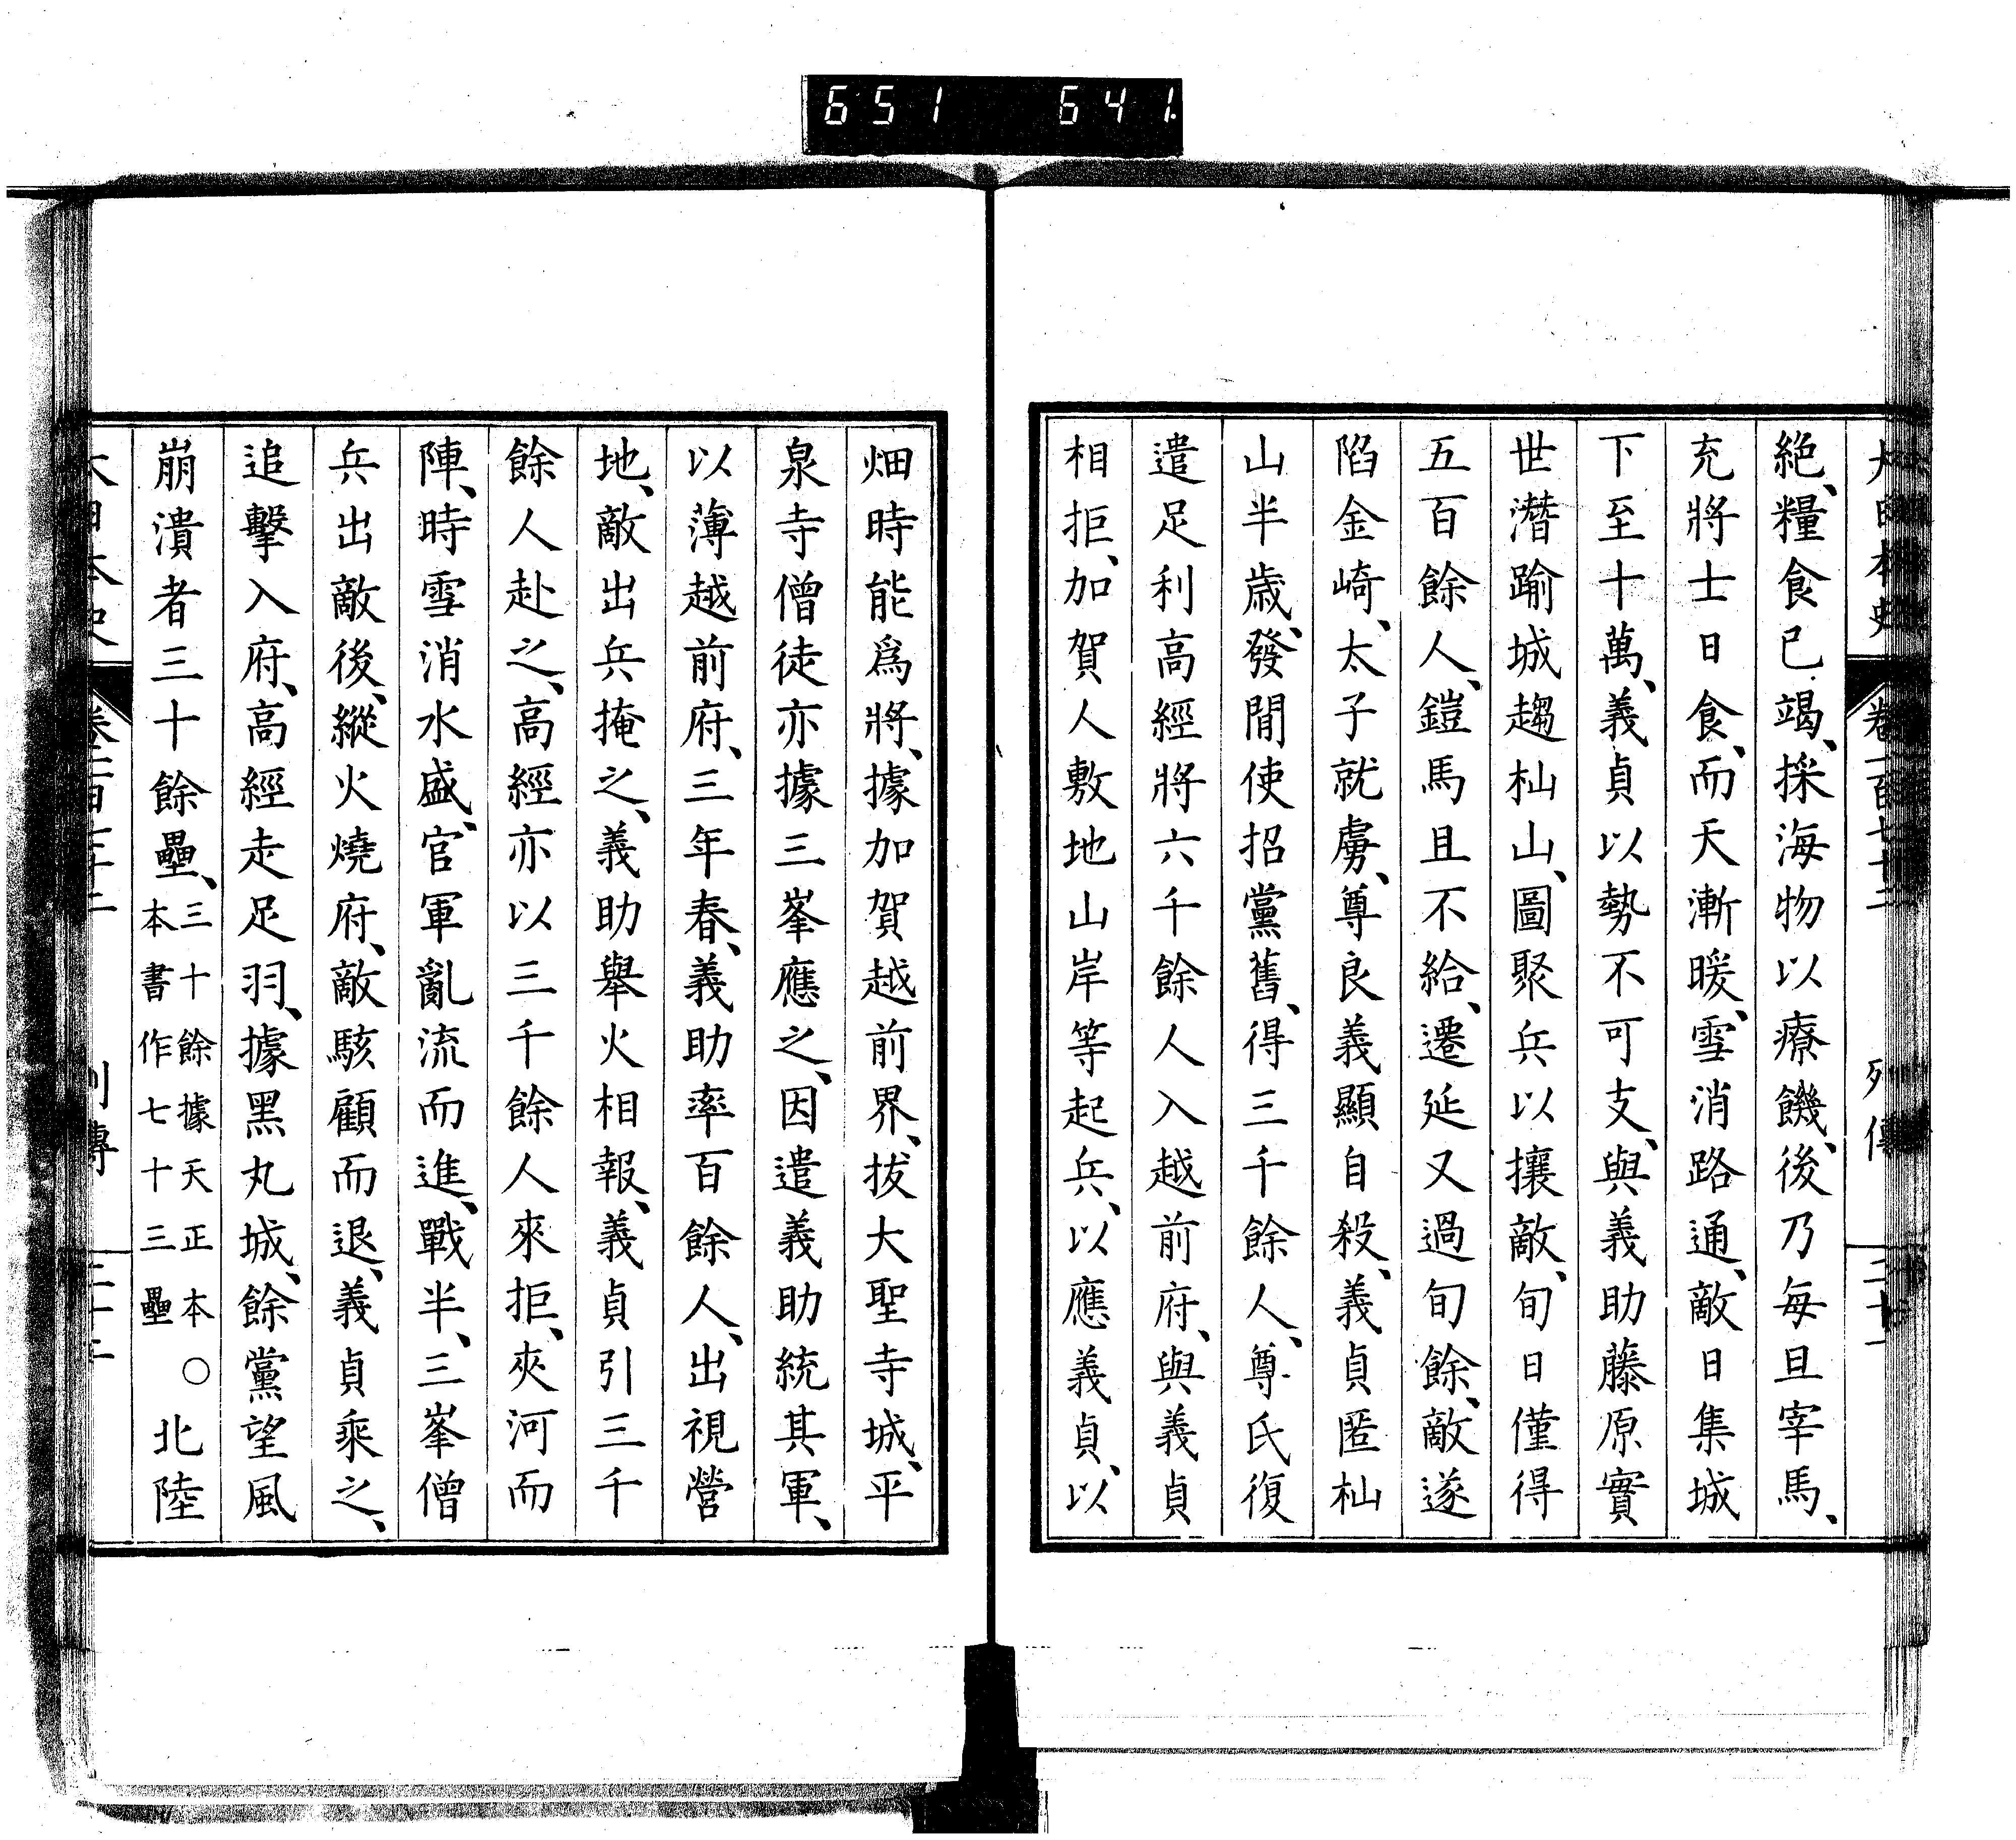 651 641
絶、糧食已竭、採海物以療饑、後乃每旦宰馬、
充將士日食、而天漸暖、雪消路通、敵日集城
下至十萬、義貞以勢不可支、與義助藤原實
世潛踰城趨杣山、圖聚兵以攘敵、旬日僅得
五百餘人、鎧馬且不給、遷延又過旬餘、敵遂
陷金崎、太子就虜、尊良義顯自殺、義貞匿杣
山半歳、發間使招黨舊、得三千餘人、尊氏復
遣足利高經將六千餘人入越前府、與義貞
相拒、加賀人敷地山岸等起兵、以應義貞、以
畑時能爲將、據加賀越前界、拔大聖寺城、平
泉寺僧徒亦據三峯應之、因遣義助統其軍、
以薄越前府、三年春、義助率百餘人、出視營
地、敵出兵掩之、義助舉火相報、義貞引三千
餘人赴之、高經亦以三千餘人來拒、夾河而
陣、時雪消水盛、官軍亂流而進、戰半、三峯僧
兵出敵後、縱火燒府、敵駭顧而退、義貞乘之、
追擊入府、高經走足羽、據黑丸城、餘黨望風
崩潰者三十餘壘、三十餘據天正本〇本書作七十三壘北陸